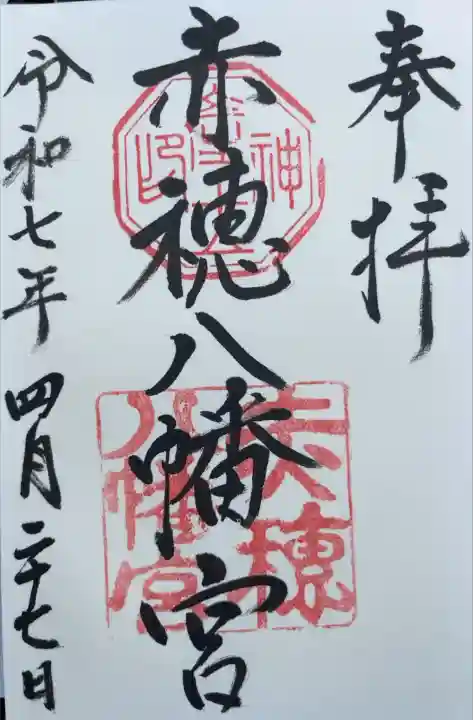 奉拝
赤穂八幡宮
令和七年四月二十七日
赤穂
八幡宮
神
印